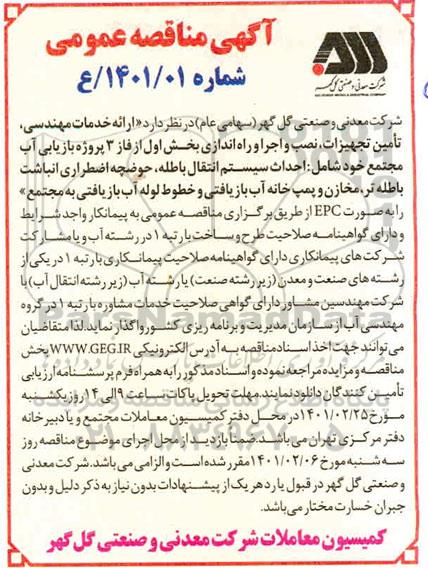 آگهی مناقصه عمومی
شماره ۱۴۰۱/۰۱/ع
شرکت معدنی و صنعتی گل گهر
شرکت معدنی و صنعتی گل گهر (سهامی عام) در نظر دارد «ارائه خدمات مهندسی،
تأمین تجهیزات، نصب و اجرا و راه اندازی بخش اول از فاز ۳ پروژه بازیابی آب
مجتمع خود شامل: احداث سیستم انتقال باطله، حوضچه اضطراری انباشت
باطله تر، مخازن و پمپ خانه آب بازیافتی و خطوط لوله آب بازیافتی به مجتمع»
را به صورت EPC از طریق برگزاری مناقصه عمومی به پیمانکار واجد شرایط
و دارای گواهینامه صلاحیت طرح و ساخت با رتبه ۱ در رشته آب و یا مشارکت
شرکت های پیمانکاری دارای گواهینامه صلاحیت پیمانکاری با رتبه ۱ در یکی از
رشته های صنعت و معدن (زیر رشته صنعت) یا رشته آب (زیر رشته انتقال آب) با
شرکت مهندسین مشاور دارای گواهی صلاحیت خدمات مشاوره با رتبه ۱ در گروه
مهندسی آب از سازمان مدیریت و برنامه ریزی کشور واگذار نماید. لذا متقاضیان
می توانند جهت اخذ اسناد مناقصه به آدرس الکترونیکی WWW.GEG.IR بخش
مناقصه و مزایده مراجعه نموده و اسناد مذکور را به همراه فرم پرسشنامه ارزیابی
تأمین کنندگان دانلود نمایند. مهلت تحویل پاکات ساعت ۹ الی ۱۴ روز یکشنبه
مورخ ۱۴۰۱/۰۲/۲۵ در محل دفتر کمیسیون معاملات مجتمع و یا دبیرخانه
دفتر مرکزی تهران می باشد. ضمناً بازدید از محل اجرای موضوع مناقصه روز
سه شنبه مورخ ۱۴۰۱/۰۲/۰۶ مقرر شده است و الزامی می باشد. شرکت معدنی
و صنعتی گل گهر در قبول یا رد هر یک از پیشنهادات بدون نیاز به ذکر دلیل و بدون
جبران خسارت مختار می باشد.
کمیسیون معاملات شرکت معدنی و صنعتی گل گهر